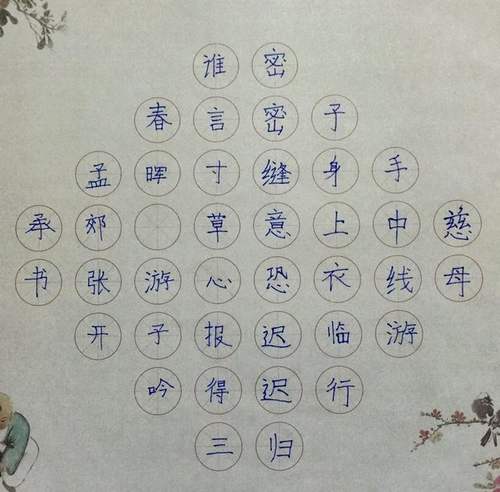 慈母
手中线游
子身上衣临行
密密缝意恐迟迟归
谁言寸草心报得三
春晖游子吟
孟郊张开
承书